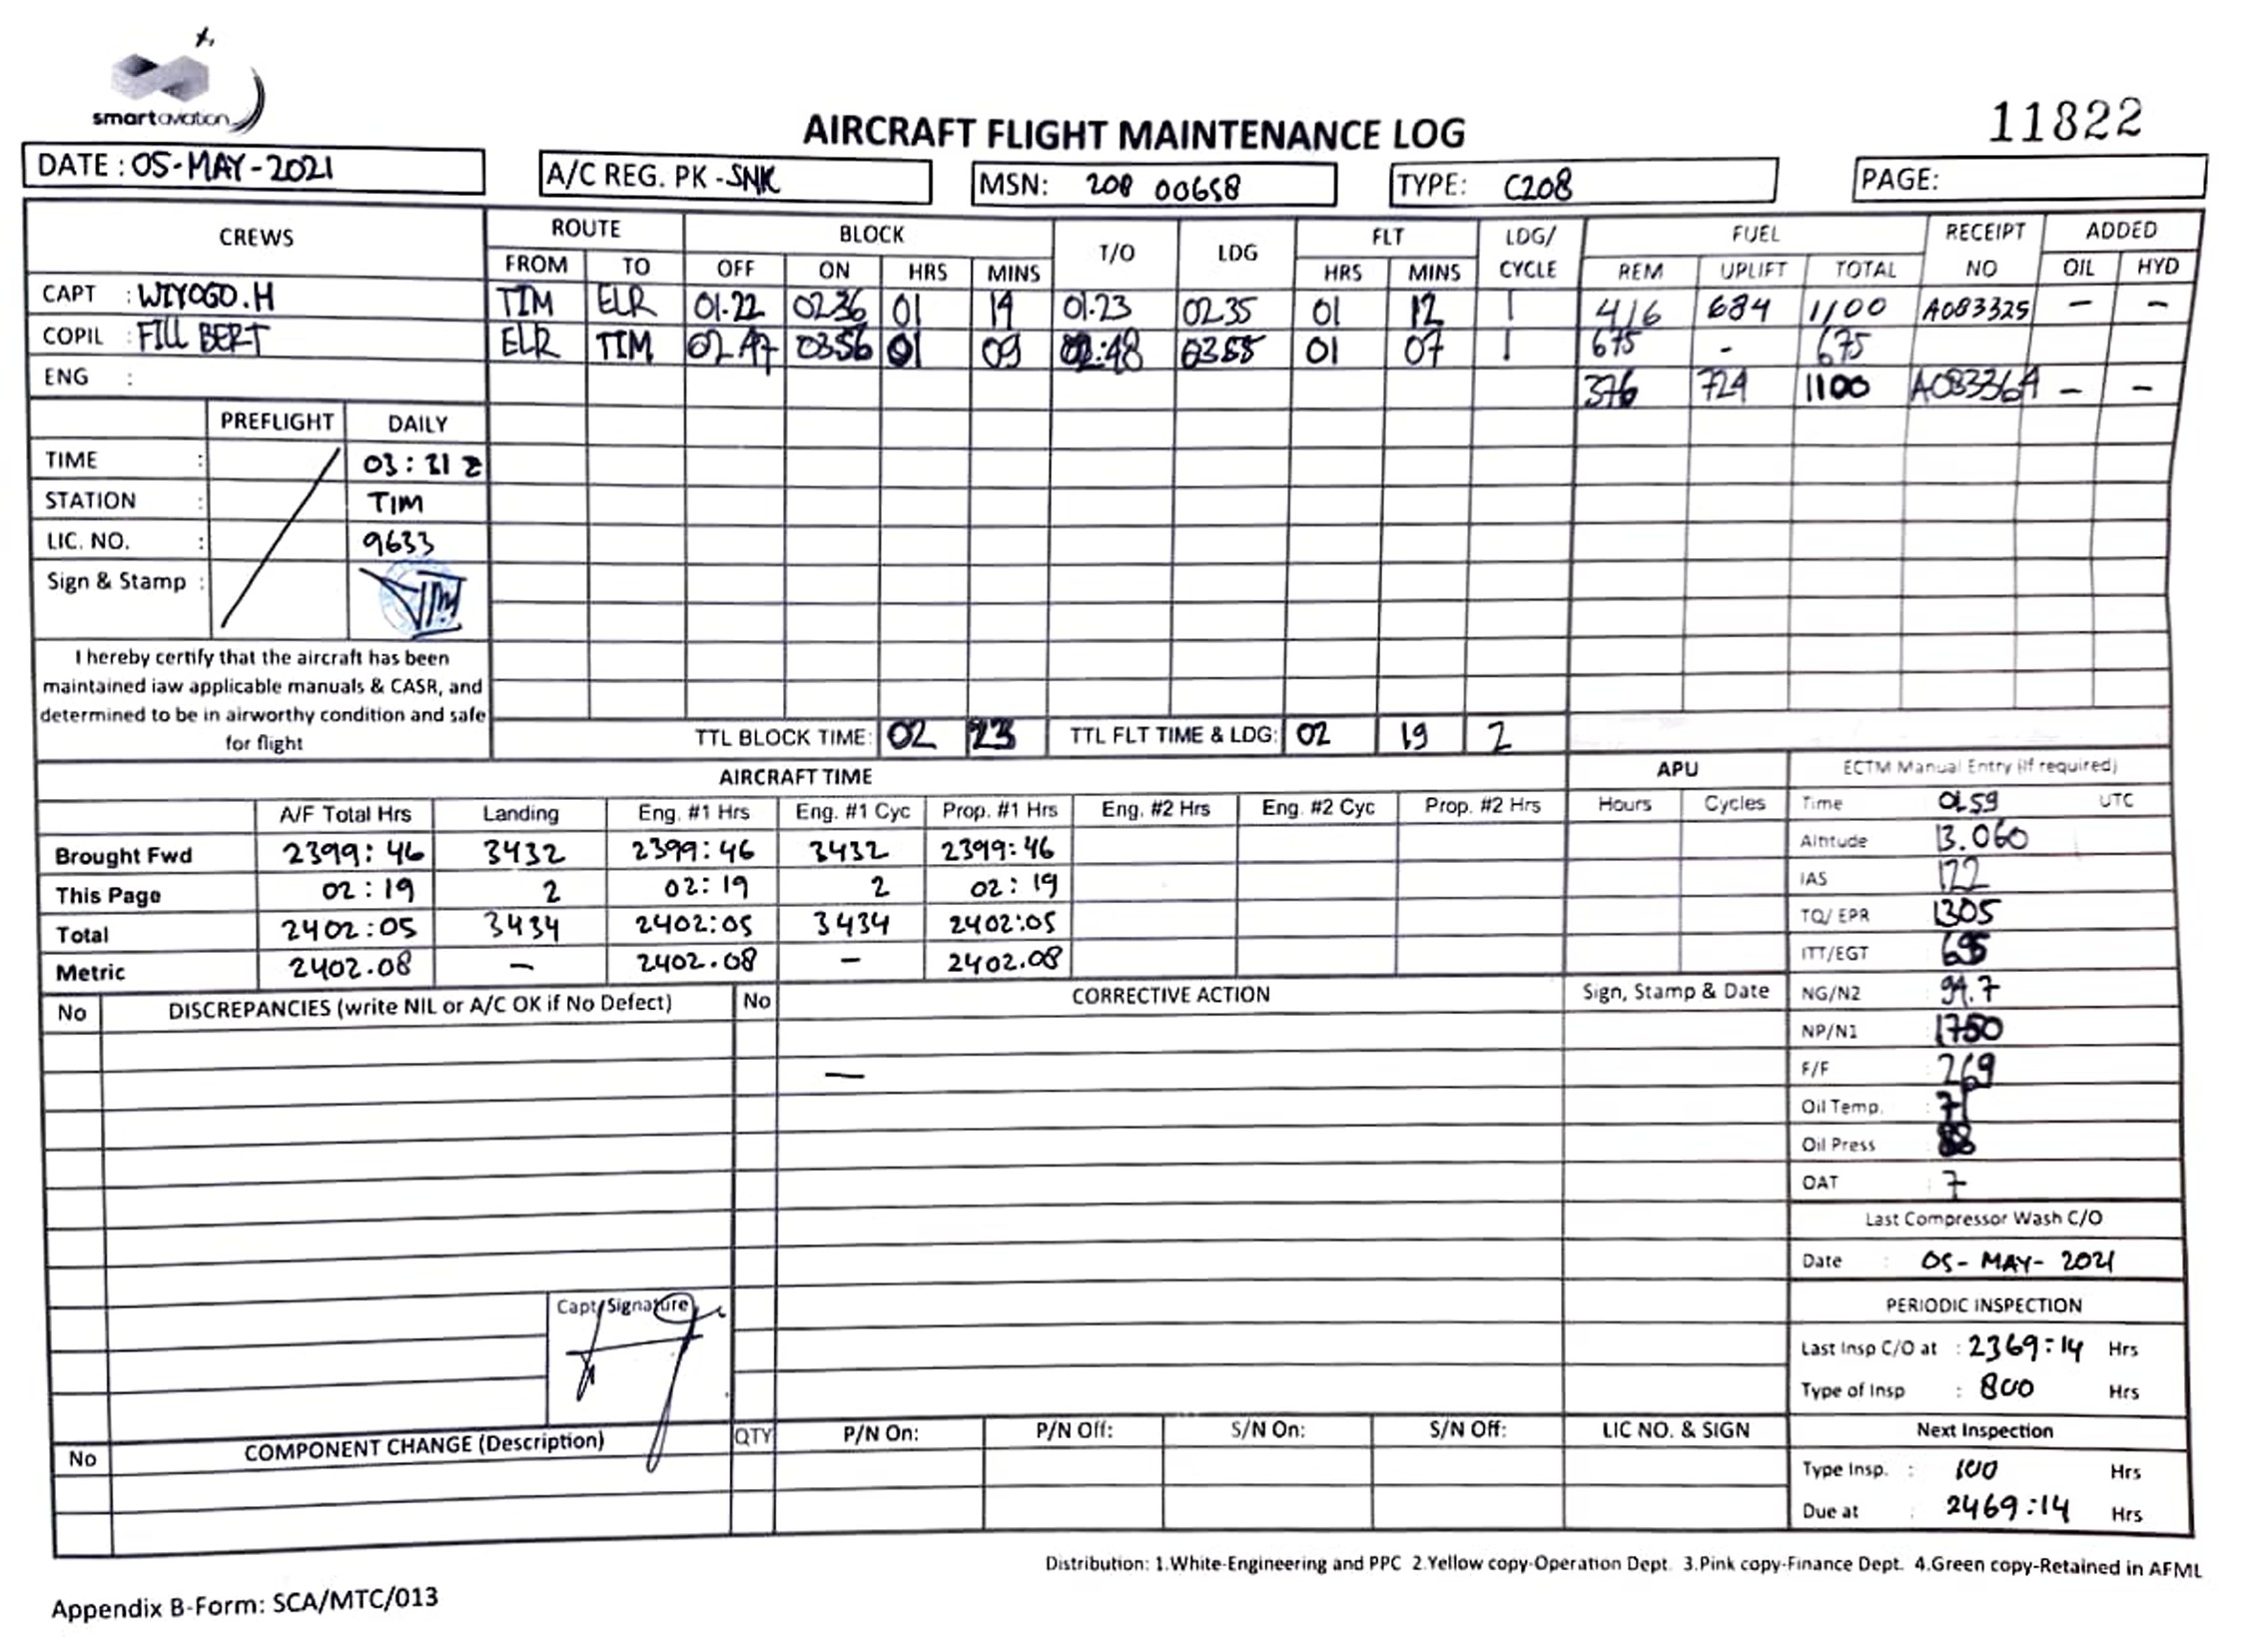 smartaviation
11822
AIRCRAFT FLIGHT MAINTENANCE LOG
DATE : 05-MAY-2021 A/C REG. PK -SNK MSN: 208 00658 TYPE: C208 PAGE:
CREWS ROUTE BLOCK T/O LDG FLT LDG/ CYCLE FUEL RECEIPT NO ADDED
FROM TO OFF ON HRS MINS HRS MINS REM UPLIFT TOTAL OIL HYD
CAPT : WIYOGO.H TIM ELR 01.22 0236 01 14 01.23 0235 01 12 1 416 684 1100 A083325 - -
COPIL : FILL BERT ELR TIM 02.47 0356 01 09 02:48 0355 01 07 1 675 - 675
ENG : 376 724 1100 A083364 - -
PREFLIGHT DAILY
TIME : 03:31 z
STATION : TIM
LIC. NO. : 9633
Sign & Stamp :
I hereby certify that the aircraft has been
maintained iaw applicable manuals & CASR, and
determined to be in airworthy condition and safe
for flight
TTL BLOCK TIME: 02 23 TTL FLT TIME & LDG: 02 19 2
AIRCRAFT TIME APU ECTM Manual Entry (If required)
A/F Total Hrs Landing Eng. #1 Hrs Eng. #1 Cyc Prop. #1 Hrs Eng. #2 Hrs Eng. #2 Cyc Prop. #2 Hrs Hours Cycles Time 0159 UTC
Brought Fwd 2399:46 3432 2399:46 3432 2399:46 Altitude 13.060
This Page 02:19 2 02:19 2 02:19 IAS 122
Total 2402:05 3434 2402:05 3434 2402:05 TQ/ EPR 1305
Metric 2402.08 - 2402.08 - 2402.08 ITT/EGT 695
No DISCREPANCIES (write NIL or A/C OK if No Defect) No CORRECTIVE ACTION Sign, Stamp & Date NG/N2 94.7
NP/N1 1750
— F/F 269
Oil Temp. : 71
Oil Press :
OAT : 7
Last Compressor Wash C/O
Date : 05- MAY- 2021
Capt Signature
PERIODIC INSPECTION
Last Insp C/O at : 2369:14 Hrs
Type of Insp : 800 Hrs
No COMPONENT CHANGE (Description) QTY P/N On: P/N Off: S/N On: S/N Off: LIC NO. & SIGN Next Inspection
Type Insp. : 100 Hrs
Due at : 2469:14 Hrs
Distribution: 1.White-Engineering and PPC 2.Yellow copy-Operation Dept. 3.Pink copy-Finance Dept. 4.Green copy-Retained in AFML
Appendix B-Form: SCA/MTC/013